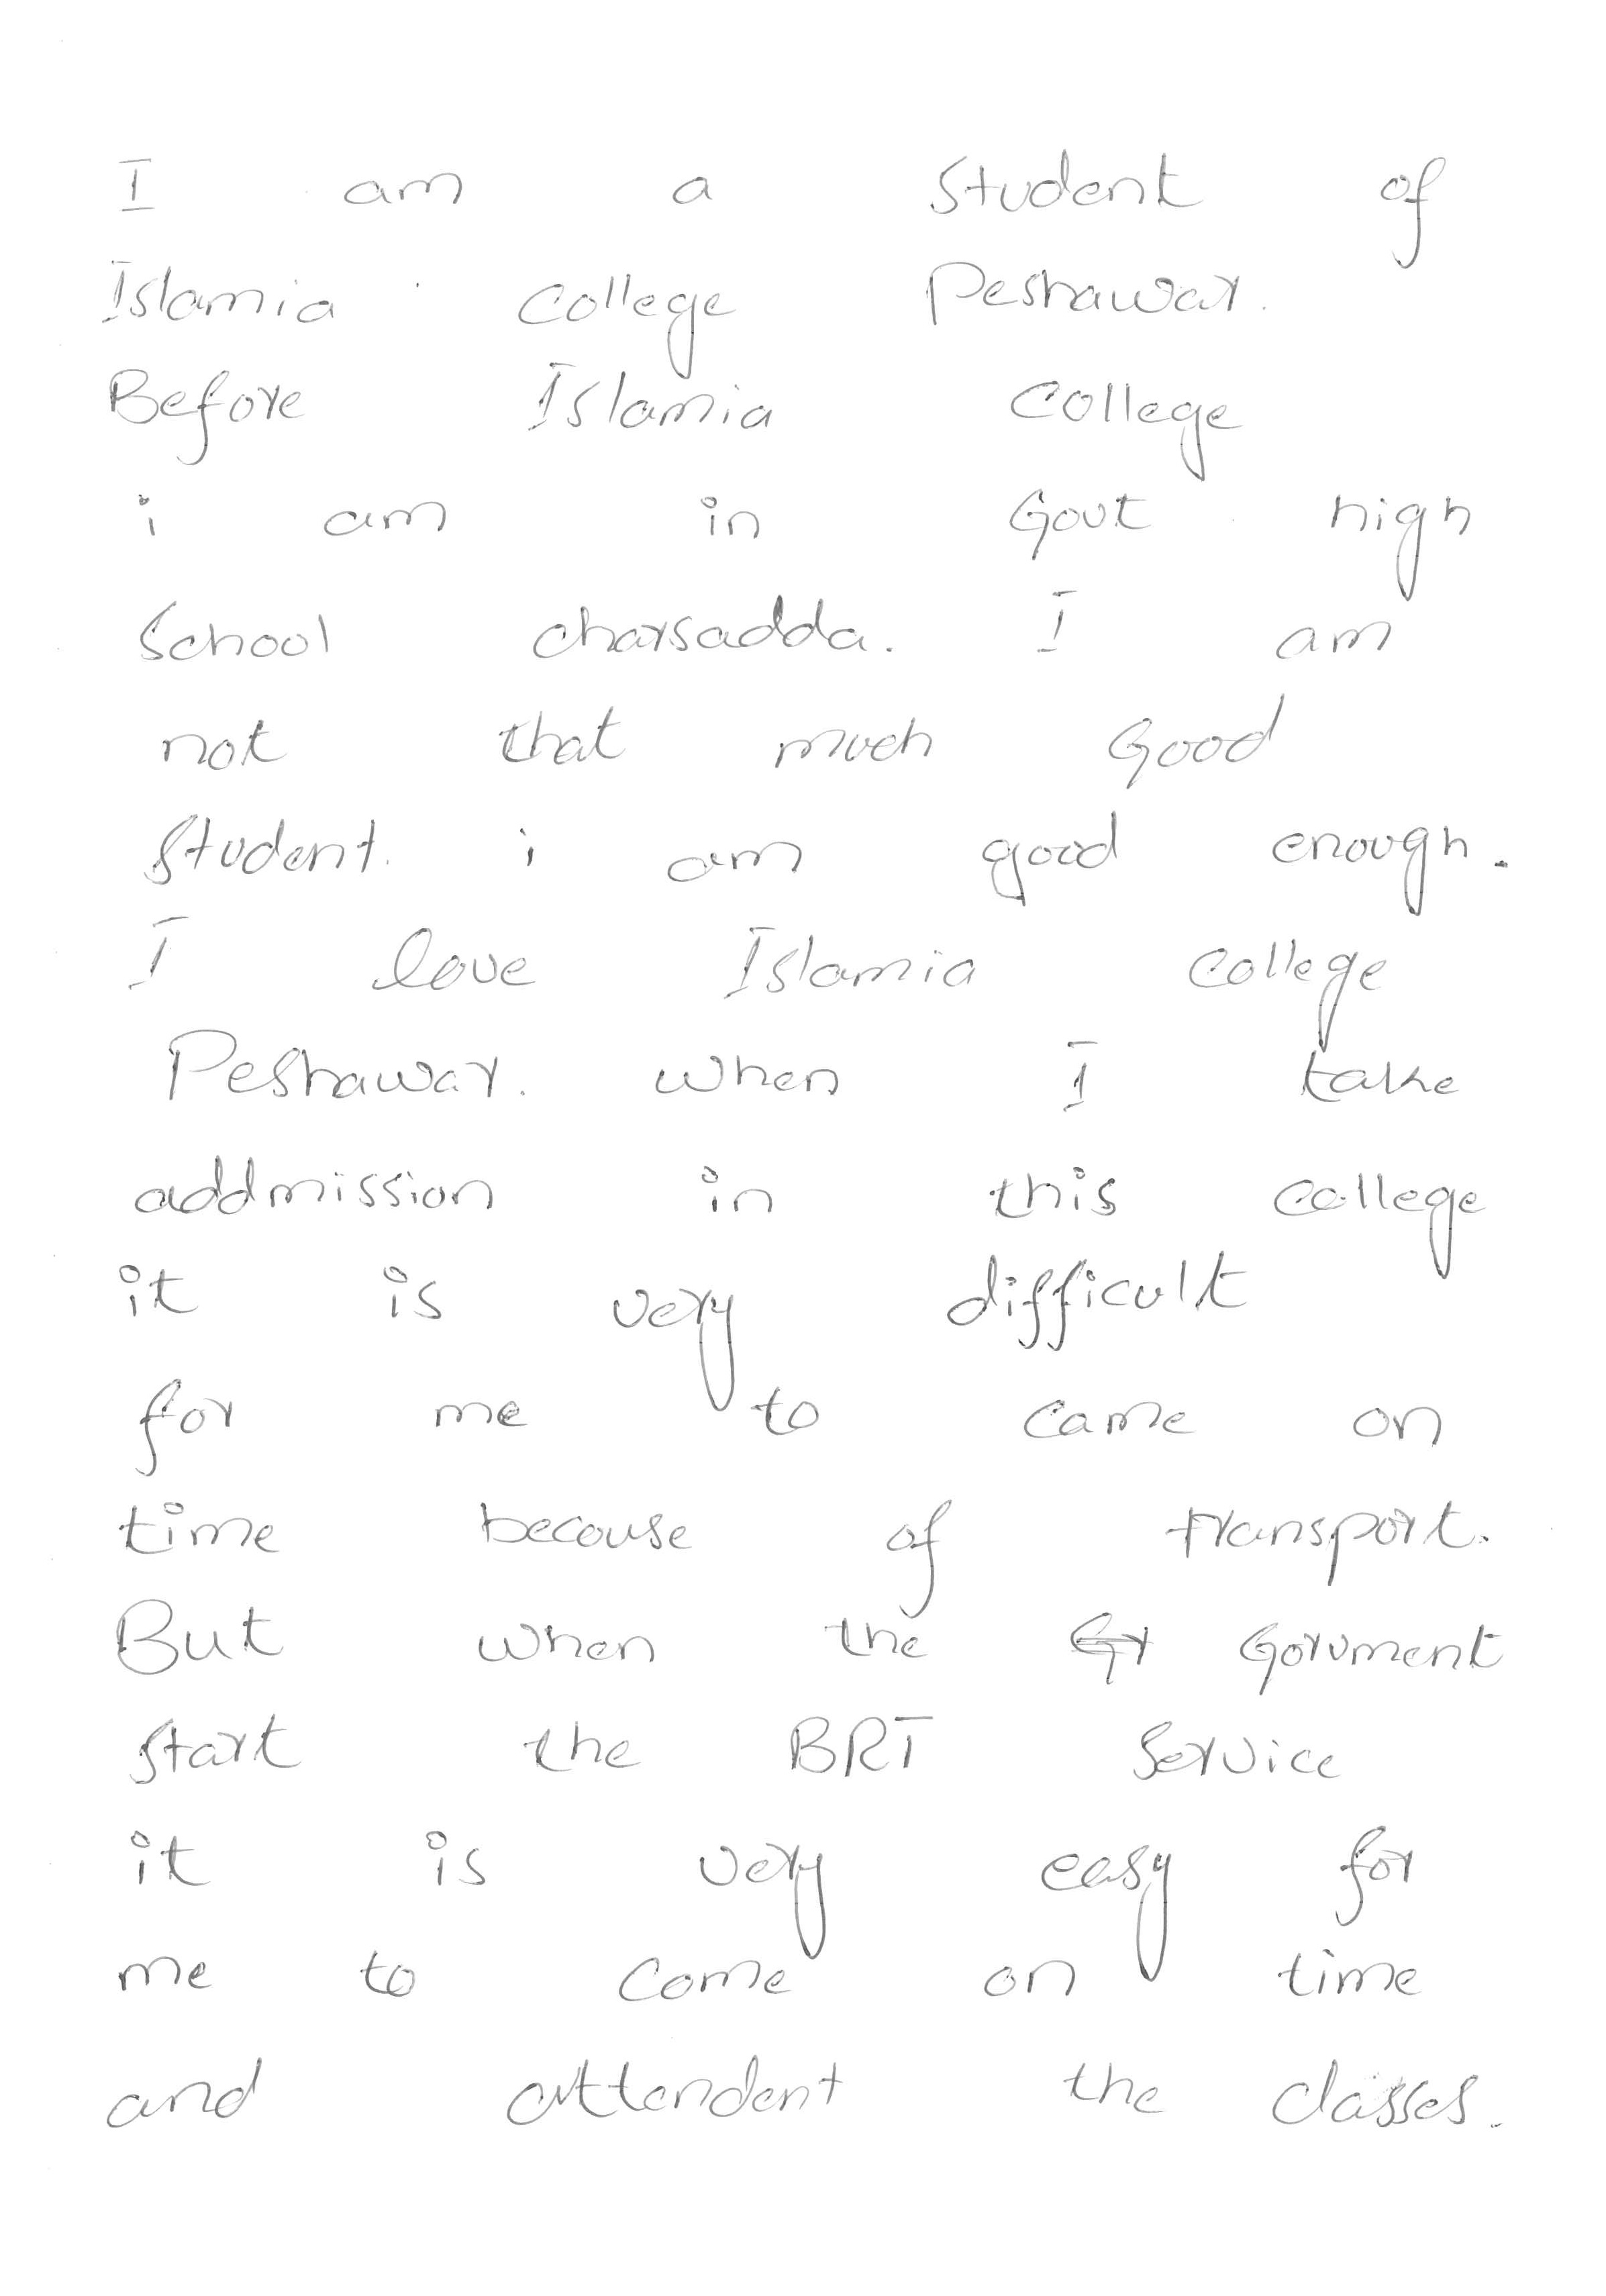 I am a student of
Islamia College Peshawar.
Before Islamia College
i am in Govt high
School charsadda. I am
not that much Good
student. i am good enough.
I love Islamia College
Peshawar. when I take
addmission in this college
it is very difficult
for me to came on
time becouse of transport.
But when the Gr Gorvment
start the BRT Service
it is very easy for
me to come on time
and attendent the classes.